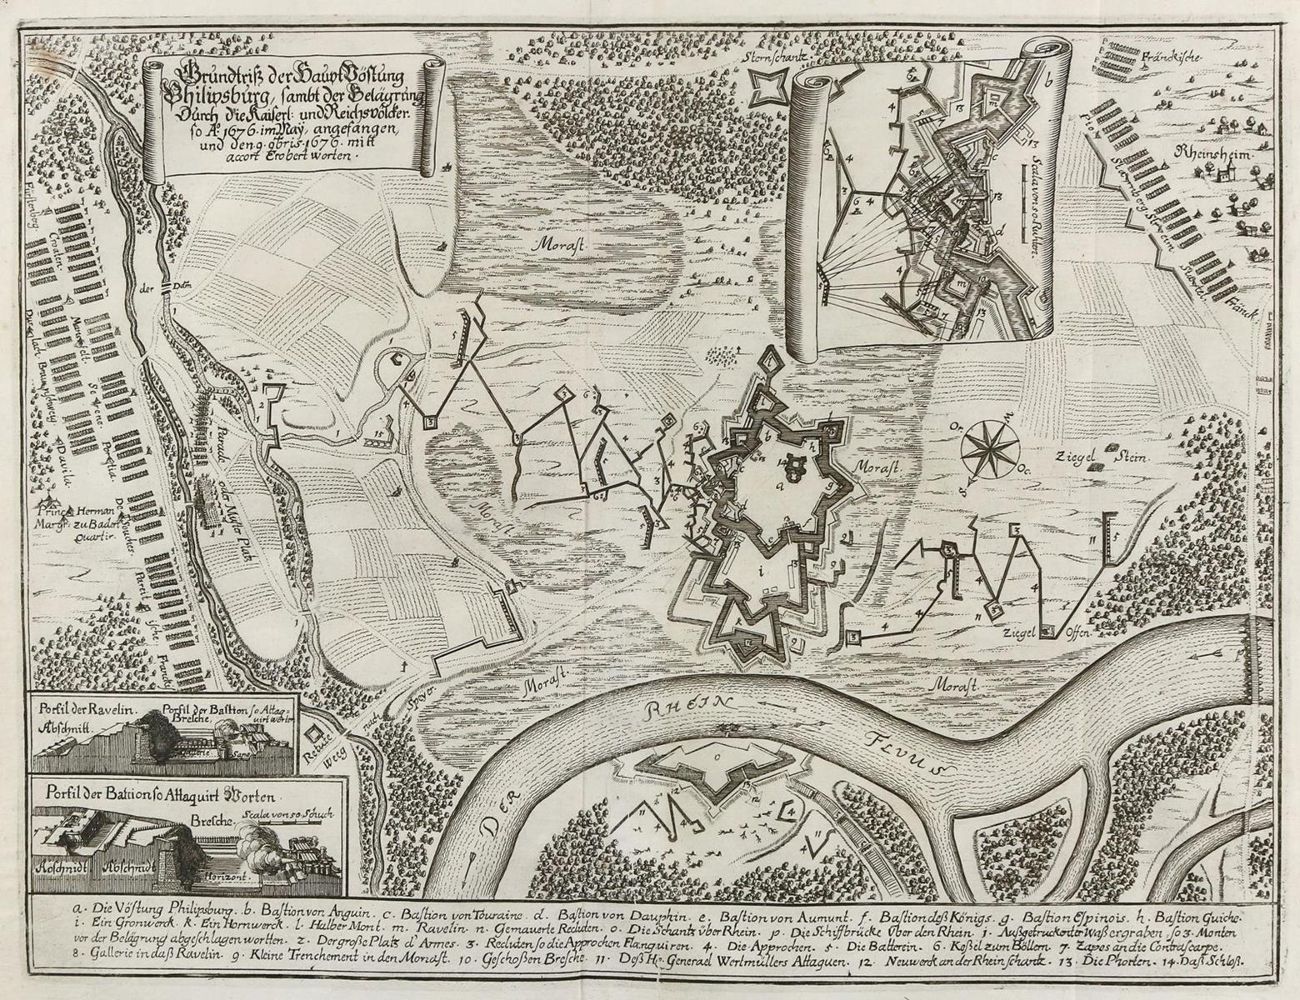 Grundtriß der Haupt Vöstung
Philipsburg, sambt der Belägrung
Durch die Kaiserl: und Reichsvölcker.
so Aº. 1676. im May. angefangen,
und den 9. 9bris. 1676. mitt
accort Erobert worten.
Sternschantz
Fränckische
Rheinsheim.
b
13
c
d
m
Scala von 50. Ruthen.
Franck
Morast.
Fürstenberg
Croaten.
der Dam
Mansfelt.
Serene.
Portia.
David
Parade
oder
Plats
Printz Herman
Marg: zu Baden
Quartir.
Morast
Morast.
Or.
Oc.
S.
Ziegel Stein.
Ziegel Offen.
nach Speyer
Morast.
Morast.
Redute
Weeg
DER RHEIN FLVUS
Porfil der Ravelin.
Abschnitt.
Porfil der Bastion so Attaq-
uirt worten
Bresche.
Porfil der Bastion so Attaquirt Worten.
Bresche.
Scala von 50 Schuch
Abschnidt
Abschnidt
Horizont.
a. Die Vöstung Philipsburg. b. Bastion von Anguin. c. Bastion von Touraine d. Bastion von Dauphin. e. Bastion von Aumunt. f. Bastion deß Königs. g. Bastion Espinois. h. Bastion Guiche.
i. Ein Cronwerck. k. Ein Hornwerck. l. Halber Mont. m. Ravelin. n. Gemauerte Reduten. o. Die Schantz über Rhein. p. Die Schiffbrücke Über den Rhein. 1. Außgetruckneter Waßergraben, so 3. Monten
vor der Belägrung abgeschlagen wortten. 2. Der große Platz d'Armes. 3. Reduten so die Approchen Flanquiren. 4. Die Approchen. 5. Die Batterein. 6. Keßel zum Böllern. 7. Zapos an die Contrscarpe.
8. Gallerie in daß Ravelin. 9. Kleine Trenchement in den Morast. 10. Geschoßen Bresche. 11. Deß Hn. General Wertmüllers Attaquen. 12. Neuwerck an der Rheinschantz. 13. Die Phorten. 14. Daß Schloß.